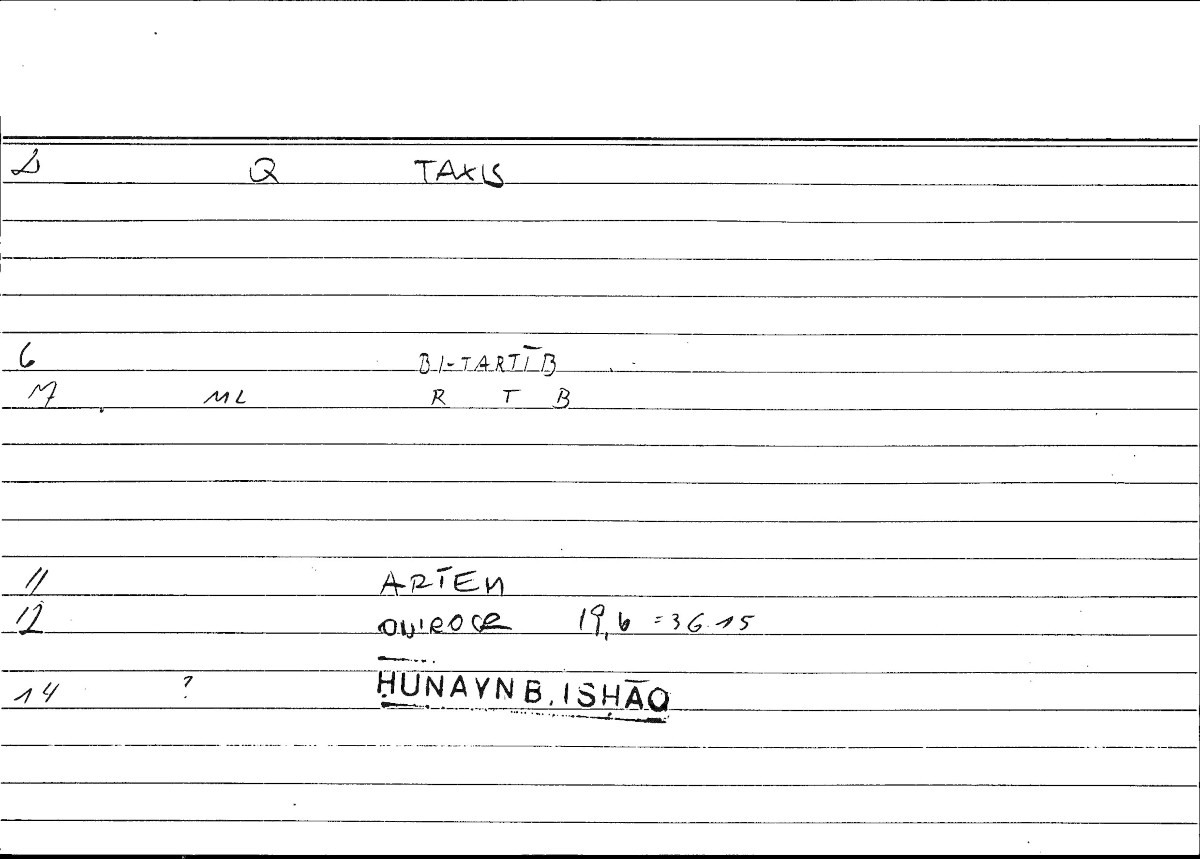 2 Q TAXIS
6 BI-TARTĪB
M ML R T B
11 ARTEM
12 ONIROCR 19,6 = 36.15
14 ? ḤUNAYN B. ISḤĀQ